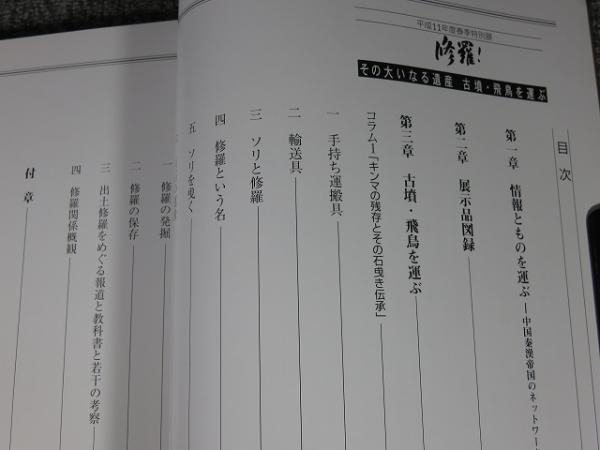 平成11年度春季特別展
修羅!
その大いなる遺産 古墳・飛鳥を運ぶ
目次
第一章 情報とものを運ぶ―中国秦漢帝国のネットワーク
第二章 展示品図録
第三章 古墳・飛鳥を運ぶ
コラムー「キンマの残存とその石曳き伝承」
一 手持ち運搬具
二 輸送具
三 ソリと修羅
四 修羅という名
五 ソリを曳く
一 修羅の発掘
二 修羅の保存
三 出土修羅をめぐる報道と教科書と若干の考察
四 修羅関係概観
付章